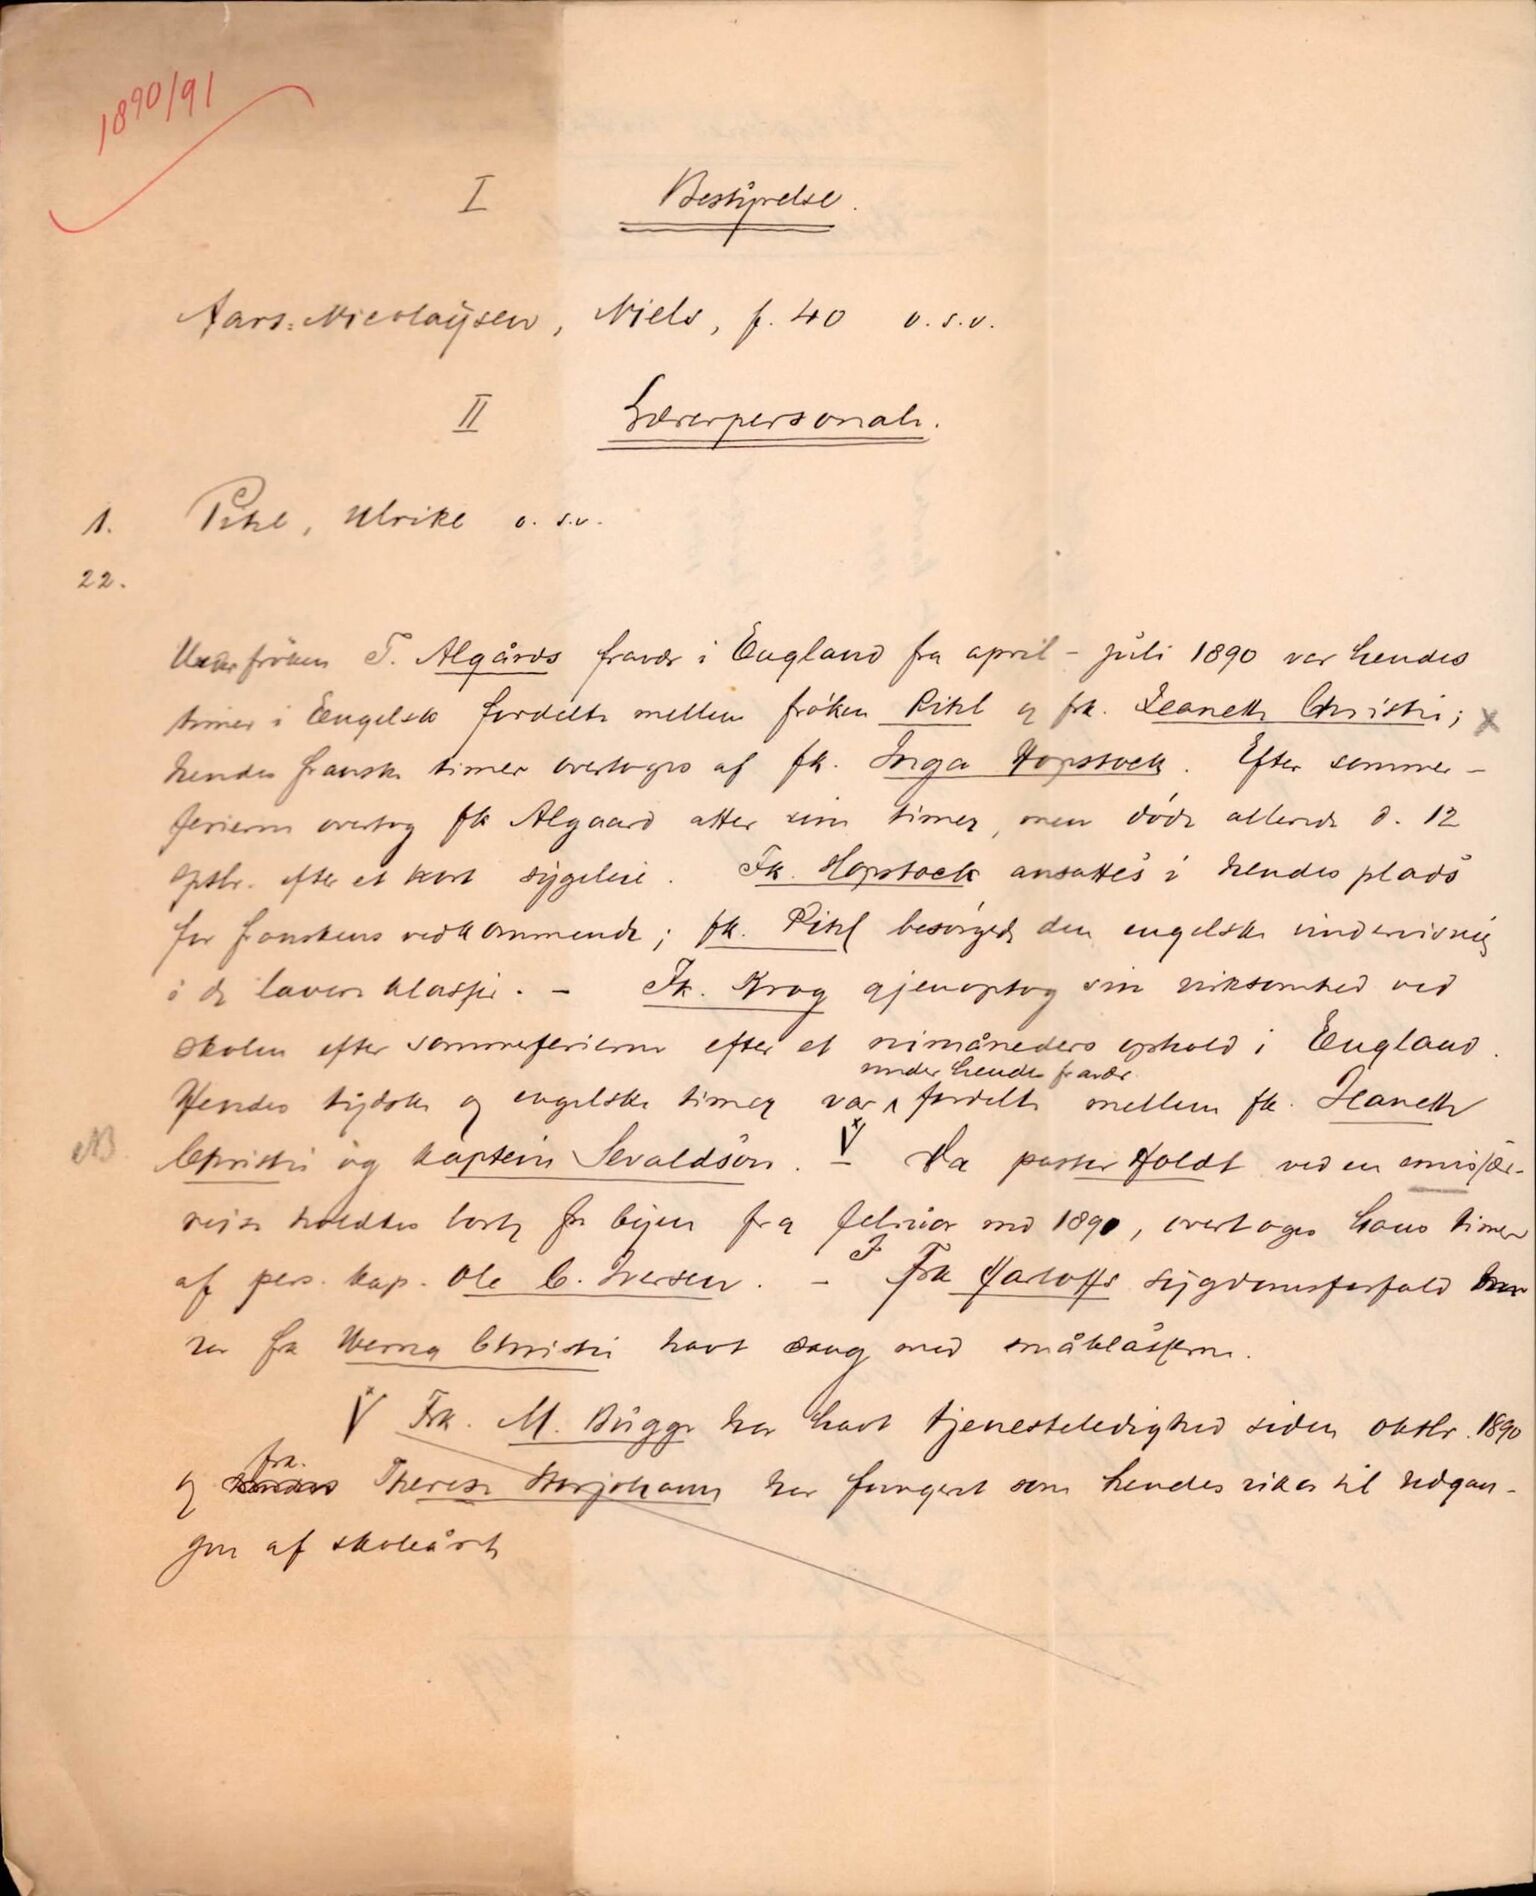 1890/91
I Bestyrelse.
Aars-Nicolaysen, Niels, f. 40 o.s.v.
II Lærerpersonale.
1. Pihl, Ulrike o.s.v.
22.
Under frøken T. Algårds fravær i England fra april - juli 1890 var hendes
timer i Engelsk fordelte mellem frøken Pihl og frk. Jeanette Christie; x
hendes franske timer overtoges af fk. Inga Hopstock. Efter sommer-
ferierne overtog fk Algaard atter sine timer, men døde allerede d. 12
septbr. efter et kort sygeleie. Fk. Hopstock ansattes i hendes plads
for franskens vedkommende; fk. Pihl besørgede den engelske undervisning
i de lavere klasser. - Fk. Krog gjenoptog sin virksomhed ved
skolen efter sommerferierne efter et nimåneders ophold i England.
under hendes fravær
Hendes tydske og engelske timer var fordelte mellem fk. Jeanette
NB. Christie og kaptein Sevaldson. V Da pastor Holdt ved en emissær-
reise holdtes borte fra byen fra februar md 1890, overtoges hans timer
af pers. kap. Ole C. Iversen. - I Frk Harloffs sygdomsforfald
har fk Werna Christie havt sang med småklasserne.
V Frk. M. Bugge har havt tjenesteledighed siden oktbr. 1890
frk.
og Therese Storjohann har fungeret som hendes vikar til udgan-
gen af skoleåret